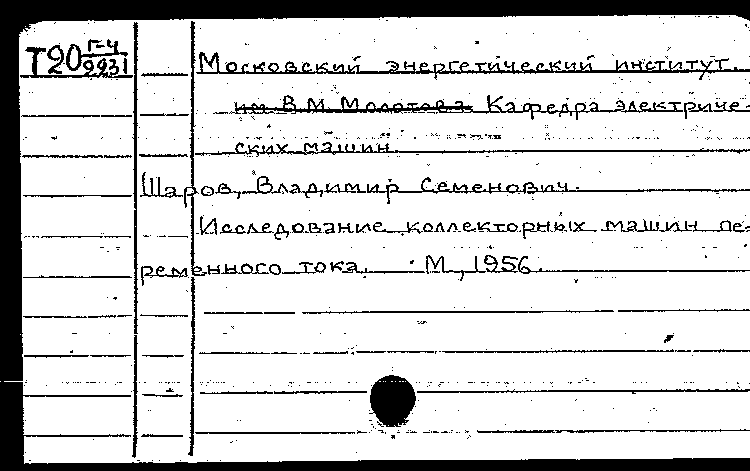 Т20 Г-4/9931 Московский энергетический институт.
им В.М. Молотова Кафедра электриче-
ских машин.
Шаров, Владимир Семенович.
Исследование коллекторных машин пе-
ременного тока. М., 1956.